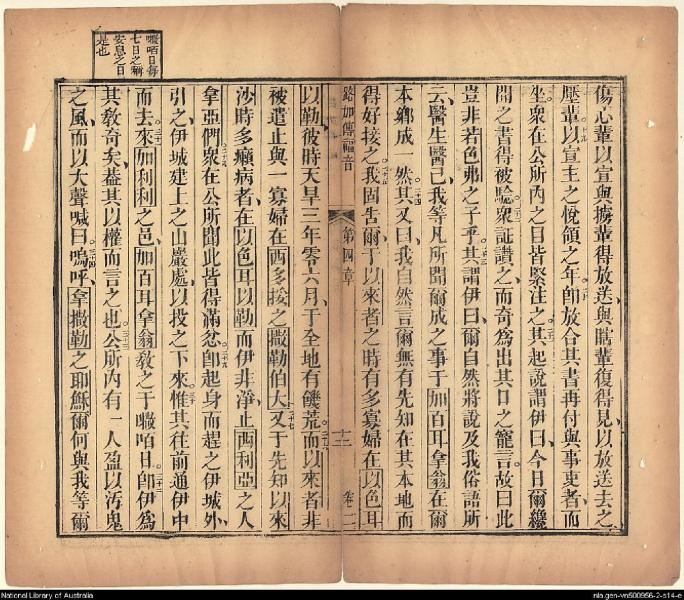 傷心輩以宣與擄輩得放送與瞎輩復得見以放送去之
壓輩以宣主之悅領之年卽放合其書再付與事吏者而
坐衆在公所內之目皆緊注之其起說謂伊曰今日爾纔
聞之書得被驗衆証讚之而奇爲出其口之寵言故曰此
豈非若色弗之子乎其謂伊曰爾自然將說及我俗語所
云醫生醫己我等凡所聞爾成之事于加百耳拿翁在爾
本鄉成一然其又曰我自然言爾無有先知在其本地而
得好接之我固告爾于以來者之時有多寡婦在以色耳
路加傳福音 第四章 十二 卷二
以勒彼時天旱三年零六月于全地有饑荒而以來者非
被遣止與一寡婦在西多接之撒勒伯大又于先知以來
沙時多癩病者在以色耳以勒而伊非淨止西利亞之人
拿亞們衆在公所聞此皆得滿忿卽起身而趕之伊城外
引之伊城建上之山巖處以投之下來惟其往前通伊中
而去來加利利之邑加百耳拿翁敎之于㘔咟日卽伊爲
其敎奇矣葢其以權而言之也公所內有一人盈以污鬼
之風而以大聲喊曰嗚呼拿撒勒之耶穌爾何與我等爾
㘔咟日每
七日之稱
安息之日
是也
National Library of Australia
nla.gen-vn500956-2-s14-e